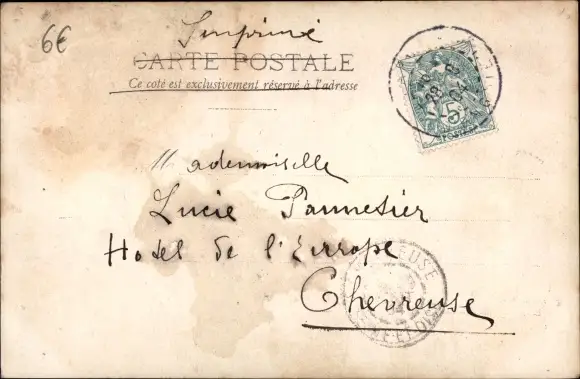 6€
Imprimé
CARTE POSTALE
Ce côté est exclusivement réservé à l'adresse
28 8
04
5
Mademoiselle
Lucie Pannetier
Hotel de l'Europe
Chevreuse
CHEVREUSE
SEINE ET OISE